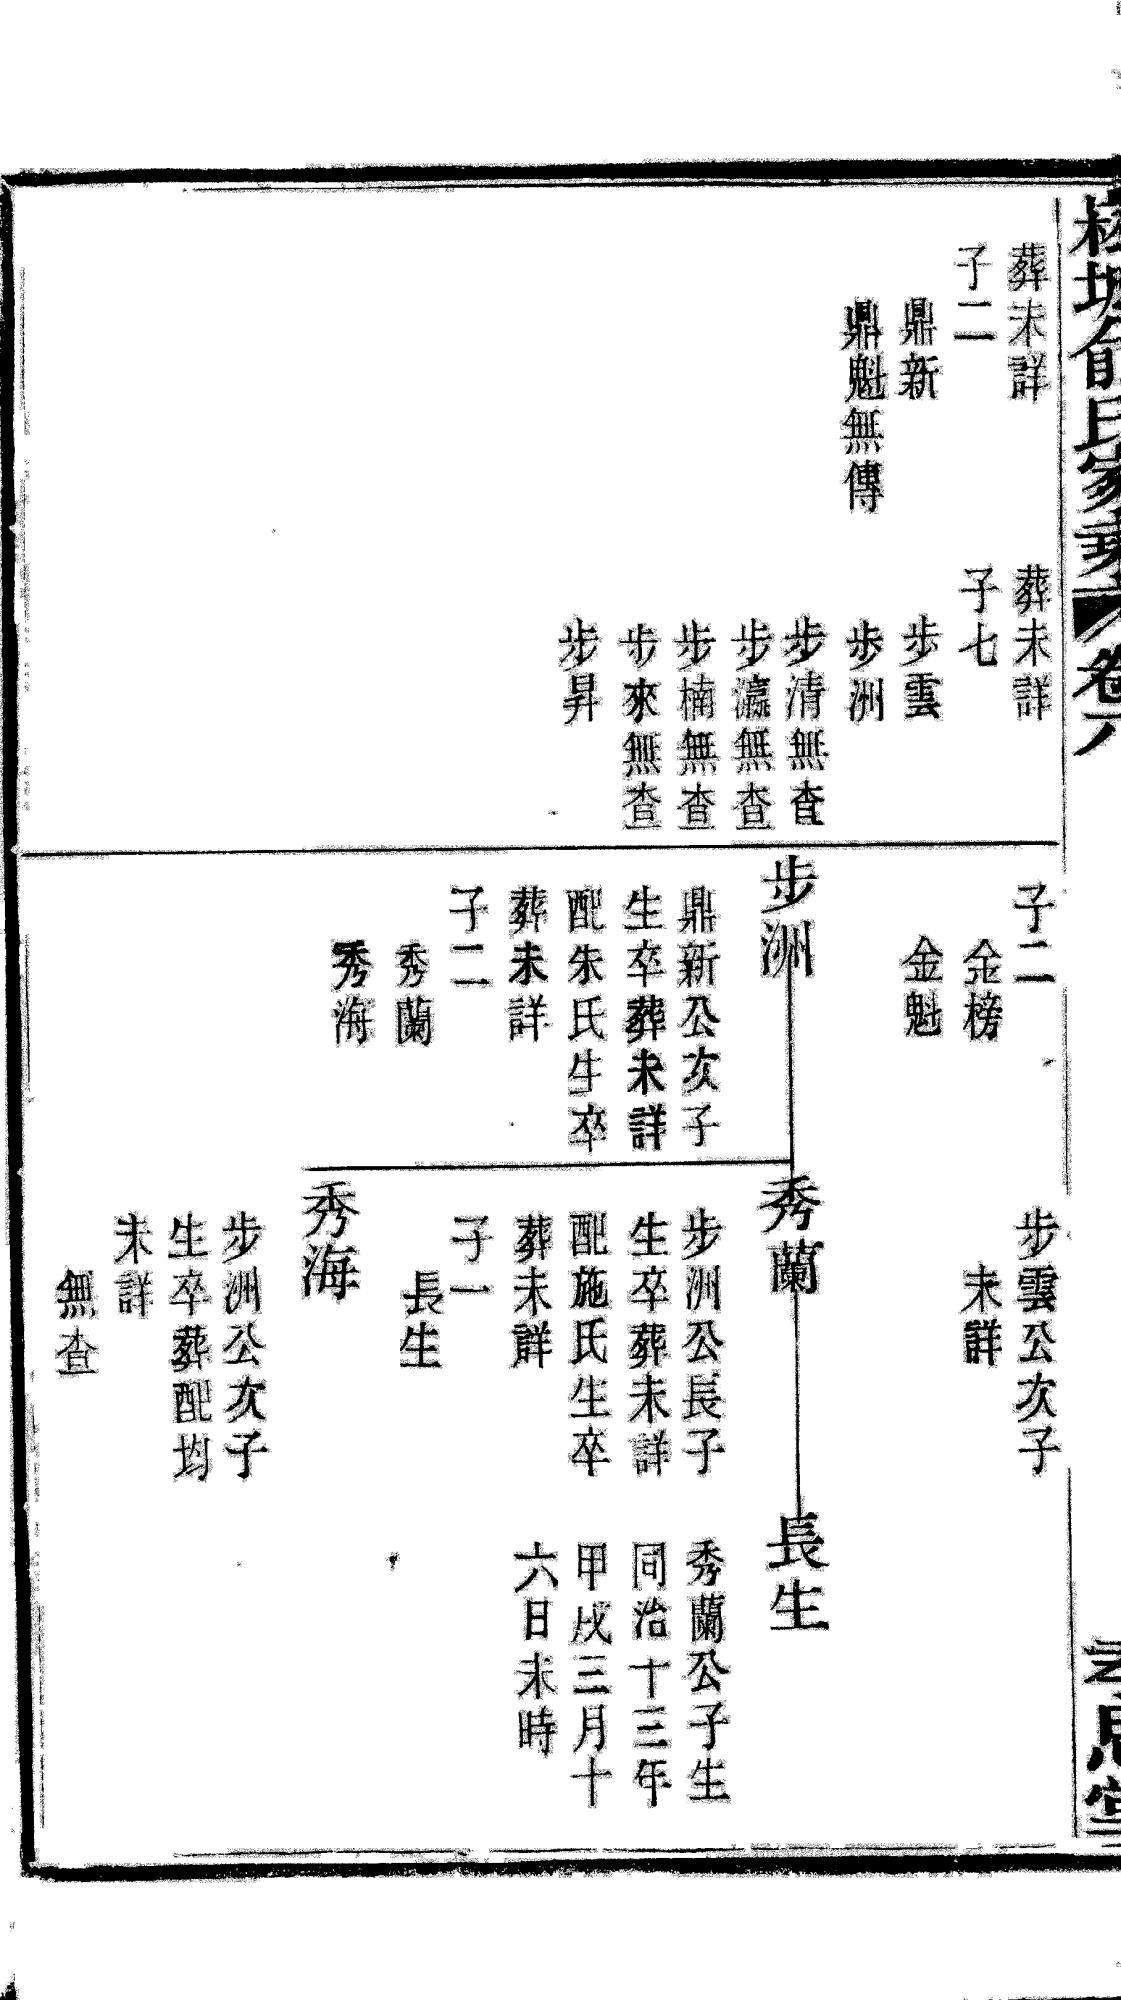 俞氏家乘
卷六
思堂
葬未詳
子二
鼎新
鼎魁無傳
葬未詳
子七
步雲
步洲
步清無查
步瀛無查
步楠無查
步來無查
步昇
子二
金榜
金魁
步洲
鼎新公次子
生卒葬未詳
配朱氏生卒
葬未詳
子二
秀蘭
秀海
步雲公次子
未詳
秀蘭
步洲公長子
生卒葬未詳
配施氏生卒
葬未詳
子一
長生
秀海
步洲公次子
生卒葬配均
未詳
無查
長生
秀蘭公子生
同治十三年
甲戌三月十
六日未時